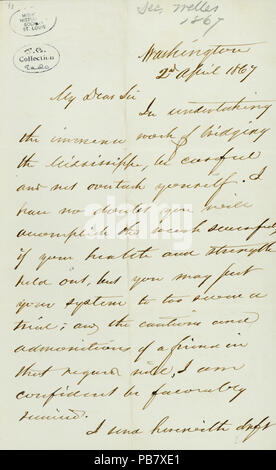 Sec. Welles
1867
MISSOURI
HISTORICAL
SOCIETY
ST. LOUIS
Collection
Washington
2d April 1867
My Dear Sir
In undertaking
the immense work of bridging
the Mississippi, be careful
and not overtask yourself. I
have no doubt you will
accomplish the work successfully
if your health and strength
hold out, but you may put
your system to too severe a
trial; and the cautions and
admonition of a friend in
that regard will, I am
confident be favorably
received.
I send herewith draft
alamy
Image ID: PB7XE1
www.alamy.com